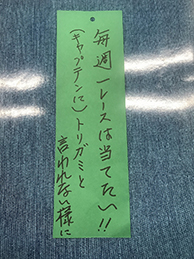 毎週一レースは当てたい!!
(キャプテンに)トリガミと
言われない様に